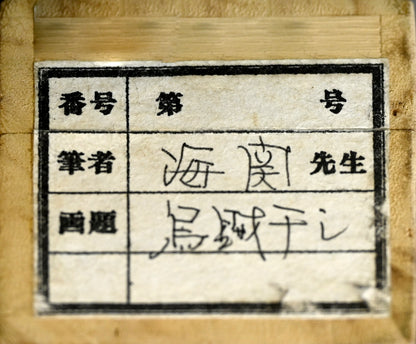 番号 第 号
筆者 海関先生
画題 烏賊干し